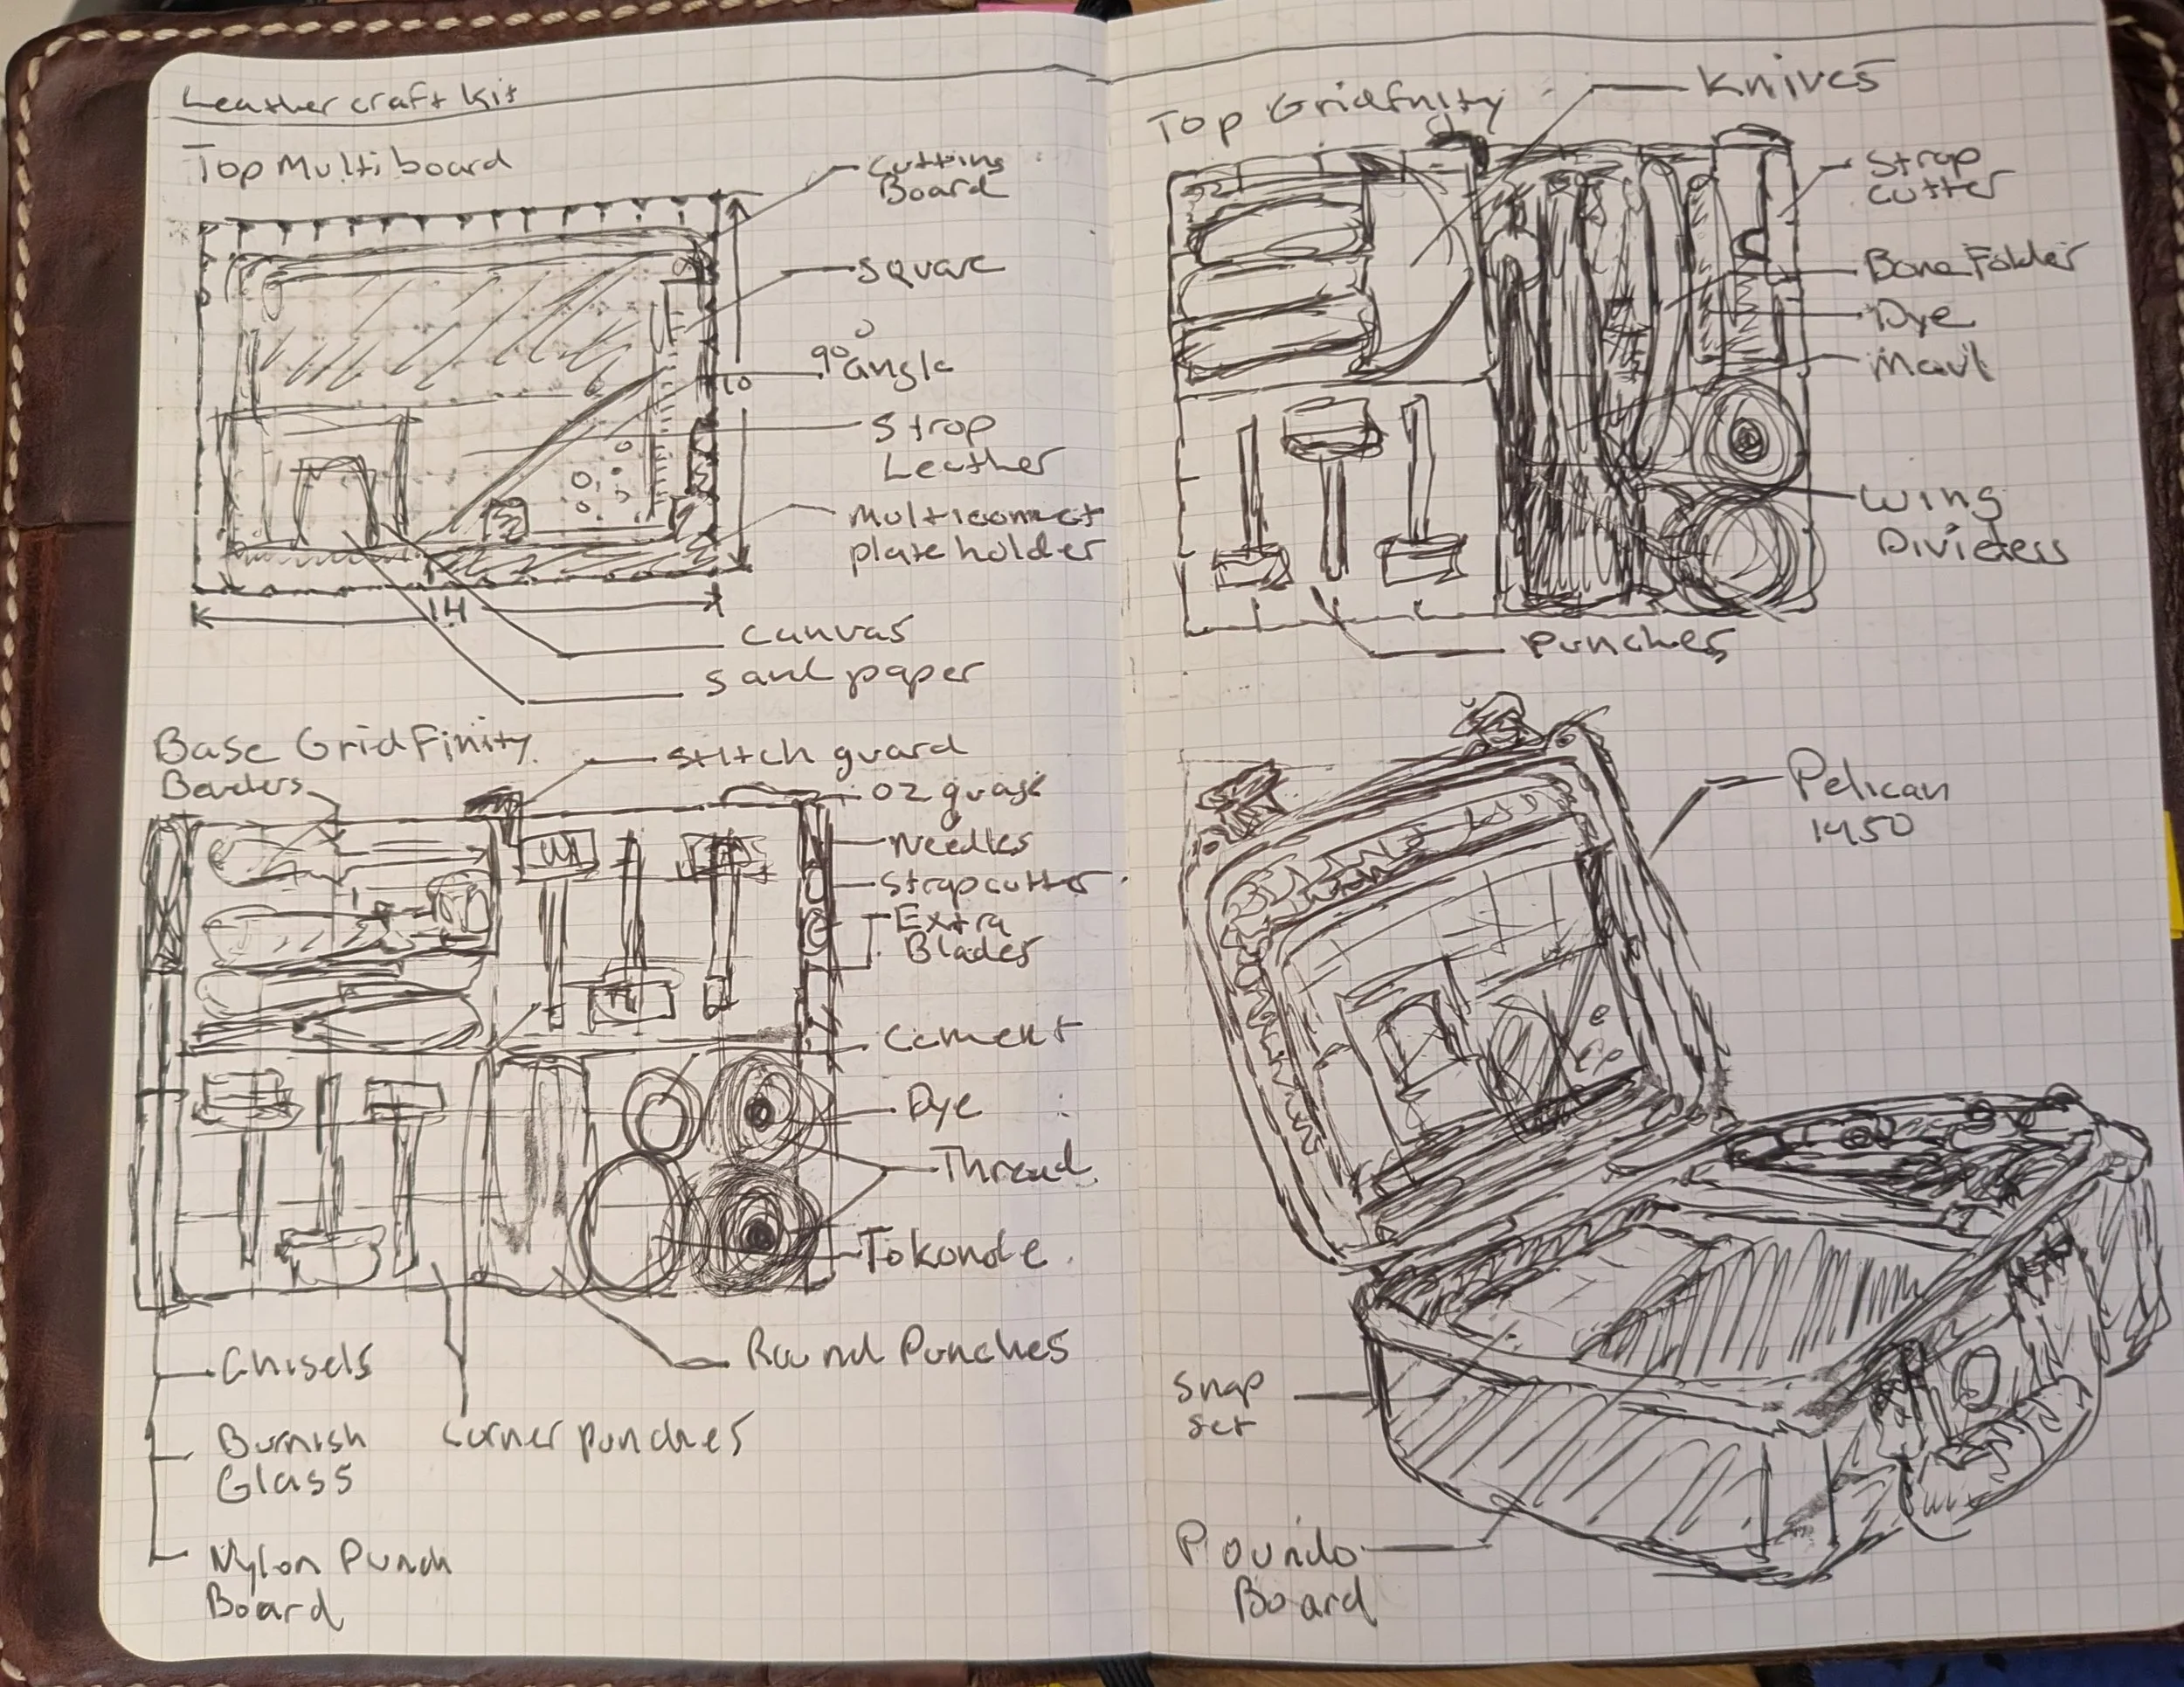 Leathercraft Kit
Top Multiboard
Cutting
Board
Square
90°
angle
10
Strop
Leather
Multiconnect
plate holder
14
Canvas
Sand paper
Base GridFinity
Bevelers
Stitch guard
oz guage
Needles
Strap cutter
Extra
Blades
Cement
Dye
Thread
Tokonole
Round Punches
Chisels
Corner punches
Burnish
Glass
Nylon Punch
Board
Top Gridfnity
Knives
Strap
cutter
Bone Folder
Dye
Maul
Wing
Divieders
Punches
Pelican
1450
Snap
Set
Poundo
Board